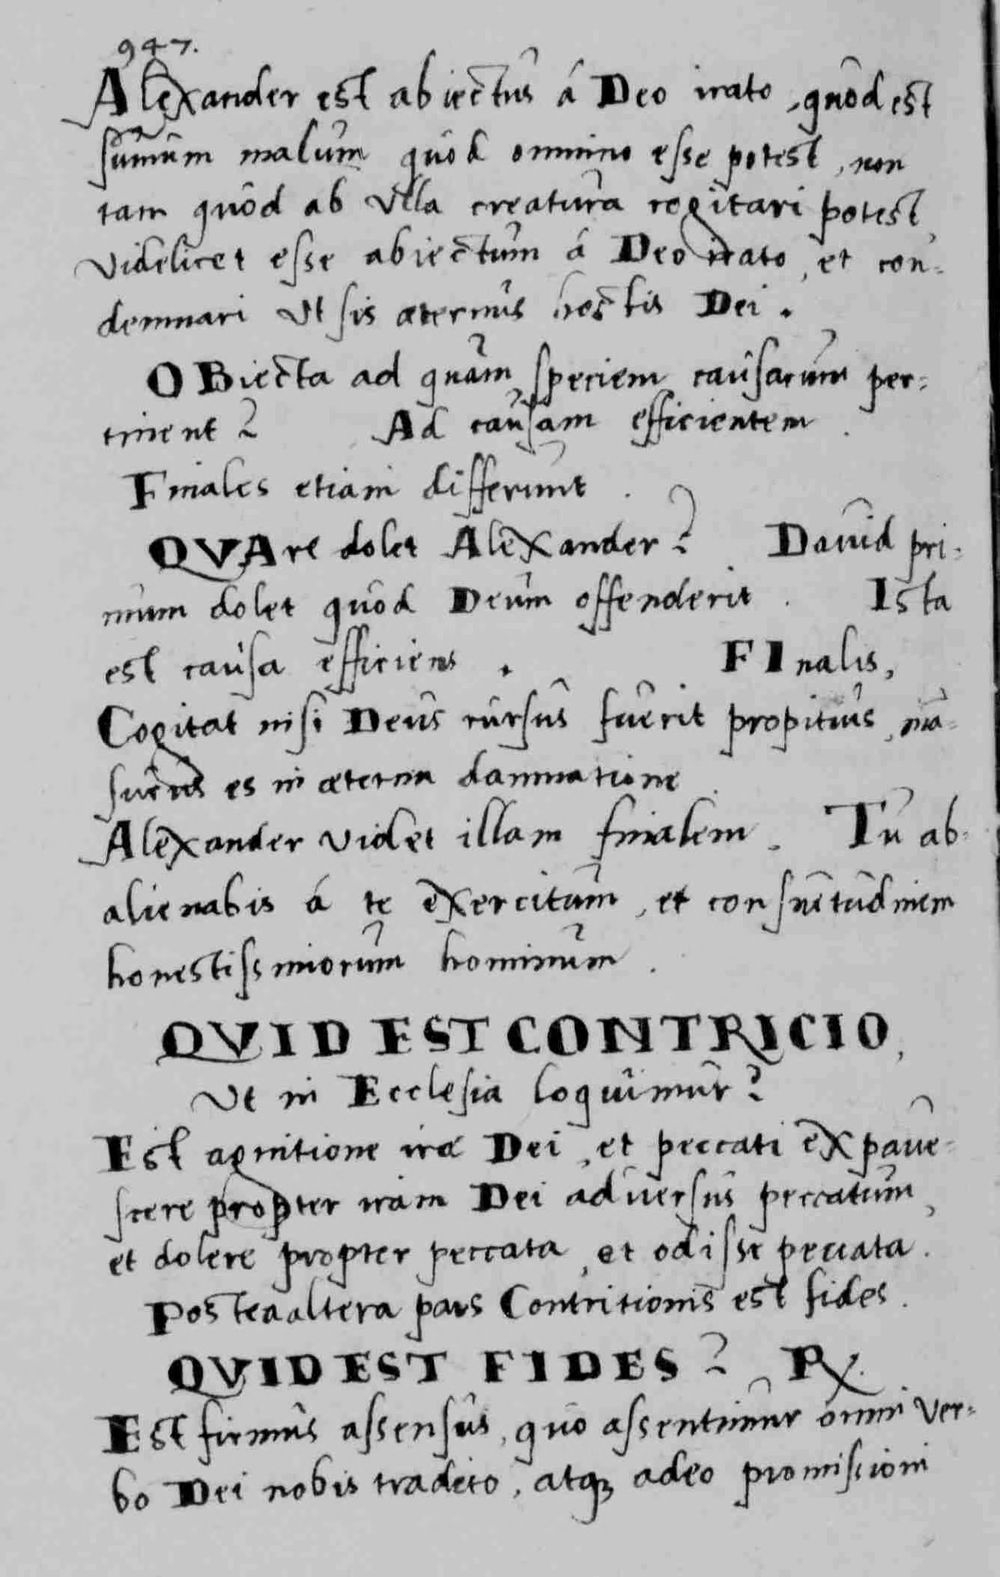 947.
Alexander est abiectus á Deo irato, quod est
summum malum quod omnino esse potest, non
tam quod ab Vlla creatura cogitari potest,
Videlicet esse abiectum á Deo irato, et con-
demnari Vt sis æternus hostis Dei.
OBiecta ad quam speciem causarum per-
tinent? Ad causam efficientem.
Finales etiam differunt.
QVAre dolet Alexander? Dauid pri-
mum dolet quod Deum offenderit. Ista
est causa efficiens. FInalis,
Cogitat nisi Deus rursus fuerit propitius, man-
surus es in æterna damnatione.
Alexander Videt illam finalem. Tu ab-
alienabis á te exercitum, et consuetudinem
honestissimorum hominum.
QVID EST CONTRICIO,
Vt in Ecclesia loquimur?
Est agnitione iræ Dei, et peccati expaue-
scere propter iram Dei aduersus peccatum,
et dolere propter peccata, et odisse peccata.
Postea altera pars Contritionis est fides.
QVID EST FIDES? R.
Est firmus assensus, quo assentimur omni Ver-
bo Dei nobis tradito, atq adeo promissioni